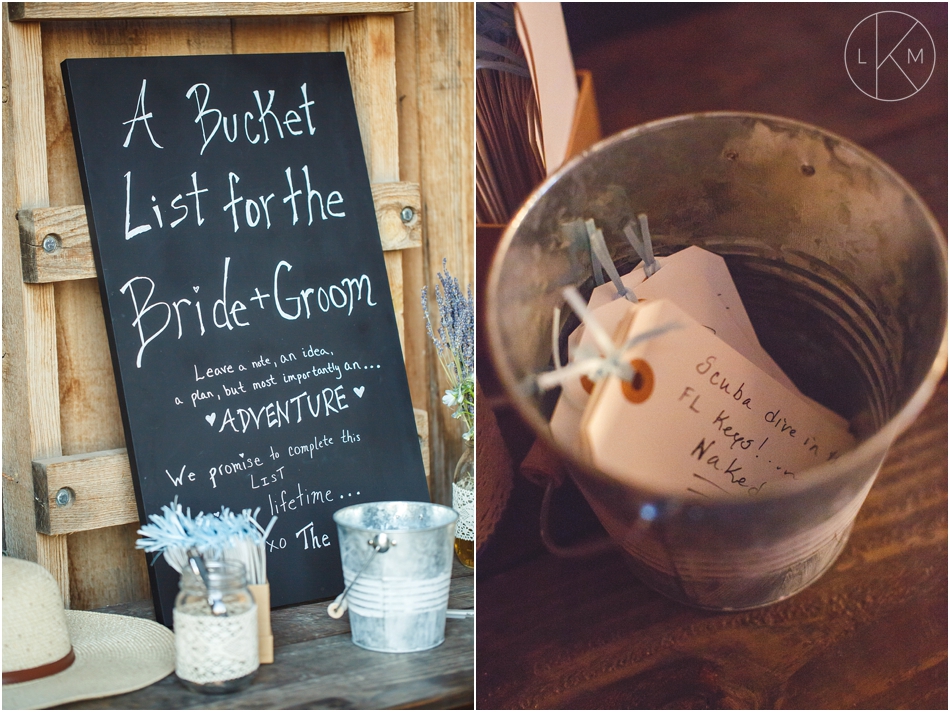 A Bucket
List for the
Bride + Groom
Leave a note, an idea,
a plan, but most importantly an...
♥ADVENTURE♥
We promise to complete this
LIST
lifetime...
xo The
LKM
Scuba dive in
FL Keys!...
Naked